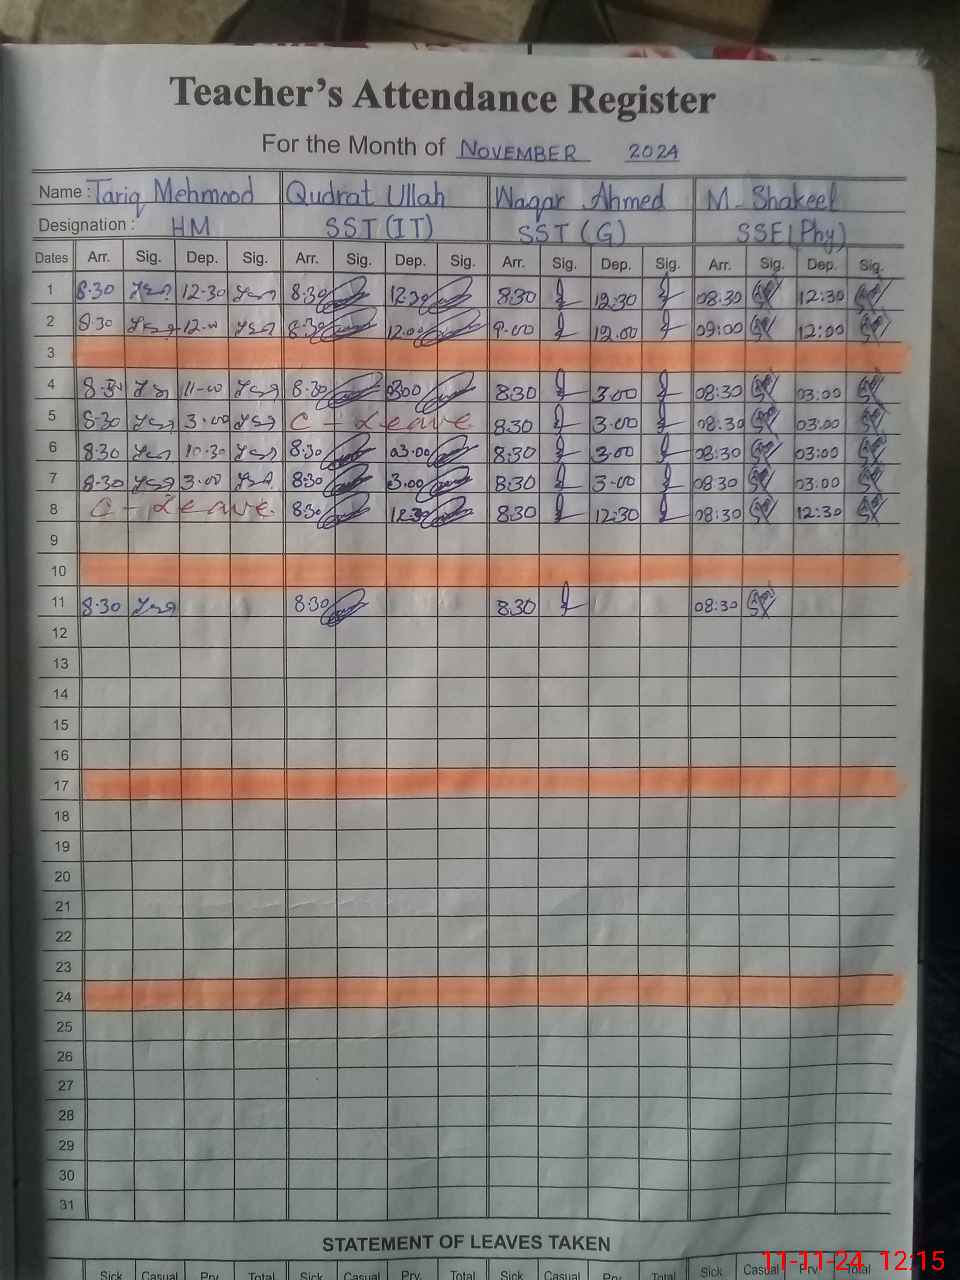 Teacher's Attendance Register
For the Month of NOVEMBER 2024
Name : Tariq Mehmood Qudrat Ullah Waqar Ahmed M. Shakeel
Designation : HM SST (IT) SST (G) SSE (Phy)
Dates Arr. Sig. Dep. Sig. Arr. Sig. Dep. Sig. Arr. Sig. Dep. Sig. Arr. Sig. Dep. Sig.
1 8.30 12.30 8.30 12.30 8.30 12.30 08:30 12:30
2 8.30 8.30 12.00 9.00 12.00 09:00 12:00
3
4 8.30 11.00 8.30 8.30 3.00 08:30 03:00
5 8.30 3.00 C - Leave 8.30 3.00 08:30 03:00
6 8.30 10.30 8.30 03.00 8.30 3.00 08:30 03:00
7 8.30 3.00 8.30 3.00 8.30 3.00 08:30 03:00
8 C - Leave 8.30 12.30 8.30 12.30 08:30 12:30
9
10
11 8.30 8.30 8.30 08:30
12
13
14
15
16
17
18
19
20
21
22
23
24
25
26
27
28
29
30
31
STATEMENT OF LEAVES TAKEN
Sick Casual Prv. Total Sick Casual Prv. Total Sick Casual Prv. Total Sick Casual Prv. Total
11-11-24 12:15